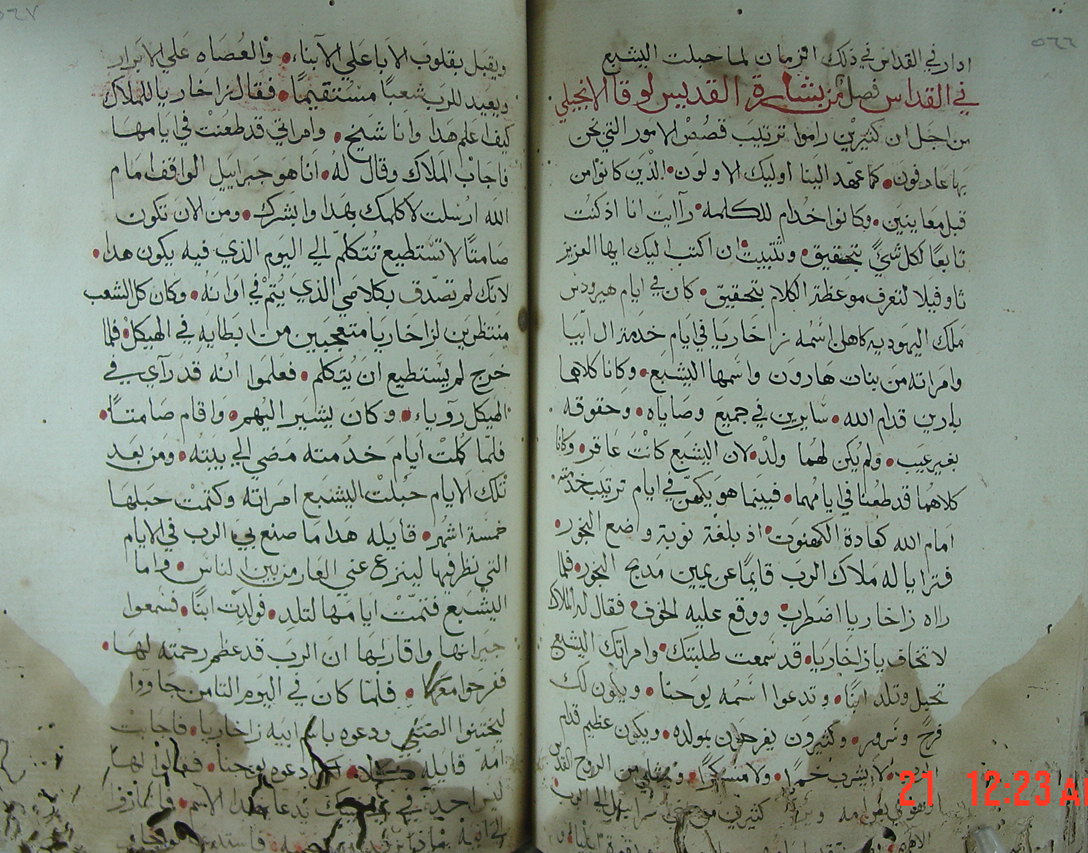 ٥٦٦
ادار في القداس في ذلك الزمان لما حبلت اليشبع
في القداس فصل من بشارة القديس لوقا الانجيلي
من اجل ان كثيرين راموا ترتيب قصص الامور التي نحن
بها عارفون كما عهد الينا اوليك الاولون الذين كانوا من
قبل معاينين وكانوا خدام للكلمه رآيت انا اذ كنت
تابعا لكل شيٍ بتحقيق وتثبيت ان اكتب اليك ايها العزيز
تاوفيلا لتعرف موعظة الكلام بتحقيق كان في ايام هيرودس
ملك اليهوديه كاهن اسمه زاخاريا في ايام خدمة ال ابيا
وامراته من بنات هارون واسمها اليشبع وكانا كلاهما
بارين قدام الله سايرين في جميع وصاياه وحقوقه
بغير عيب ولم يكن لهما ولد لان اليشبع كانت عاقر وكانا
كلاهما قد طعنا في ايامهما فبينما هو يكهن في ايام ترتيب خدمته
امام الله كعادة الكهنوت اذ بلغة نوبة وضع البخور
فترايا له ملاك الرب قايمًا عن يمين مدبح البخور فلما
راه زاخاريا اضطرب ووقع عليه الخوف فقال له الملاك
لا تخاف يا زاخاريا قد سمعت طلبتك وامراتك اليشبع
تحبل وتلد ابنًا وتدعوا اسمه يوحنا ويكون لك
فرح وسرور وكثيرون يفرحون بمولده ويكون عظيم قدام
الرب لا يشرب خمرًا ولا مسكرًا ويمتلي من الروح القدس
وهو في امه كثيرين من بني الى الرب
٥٦٧
ويقبل بقلوب الابا على الآبناء والعصاه على الابرار
ويعيد للرب شعبًا مستقيمًا فقال زاخاريا للملاك
كيف اعلم هدا وانا شيخ وامراتي قد طعنت في ايامها
فاجاب الملاك وقال له انا هو جبراييل الواقف امام
الله ارسلت لاكلمك بهدا وابشرك ومن الان تكون
صامتًا لا تستطيع تتكلم الي اليوم الذي فيه يكون هدا
لانك لم تصدق بكلامي الذي يتم في اوانه وكان كل الشعب
منتظرين لزاخاريا متعجبين من ابطايه في الهيكل فلما
خرج لم يستطيع ان يتكلم فعلموا انه قد رآي في
الهيكل روياء وكان يشير اليهم واقام صامتًا
فلما كملت ايام خدمته مضي الي بيته ومن بعد
تلك الايام حبلت اليشبع امراته وكتمت حبلها
خمسة اشهر قايله هدا ما صنع بي الرب في الايام
التي نظر فيها لينزع عني العار من بين الناس واما
اليشبع فتمت ايامها لتلد فولدت ابنًا فسمعوا
جيرانها واقاربها ان الرب قد عظم رحمته لها
ففرحوا معها فلما كان في اليوم الثامن جاووا
ليختنوا الصبي ودعوه باسم ابيه زاخاريا فاجابت
امه قايله ادعوه يوحنا فقالوا لها
ليس احد في تدعا بهدا الاسم
21 12:23 A